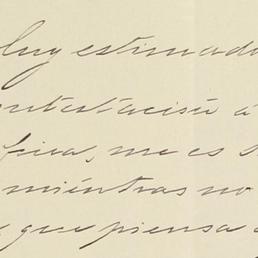 Muy estimado
contestación á
fica, me es
mientras no
que piensa